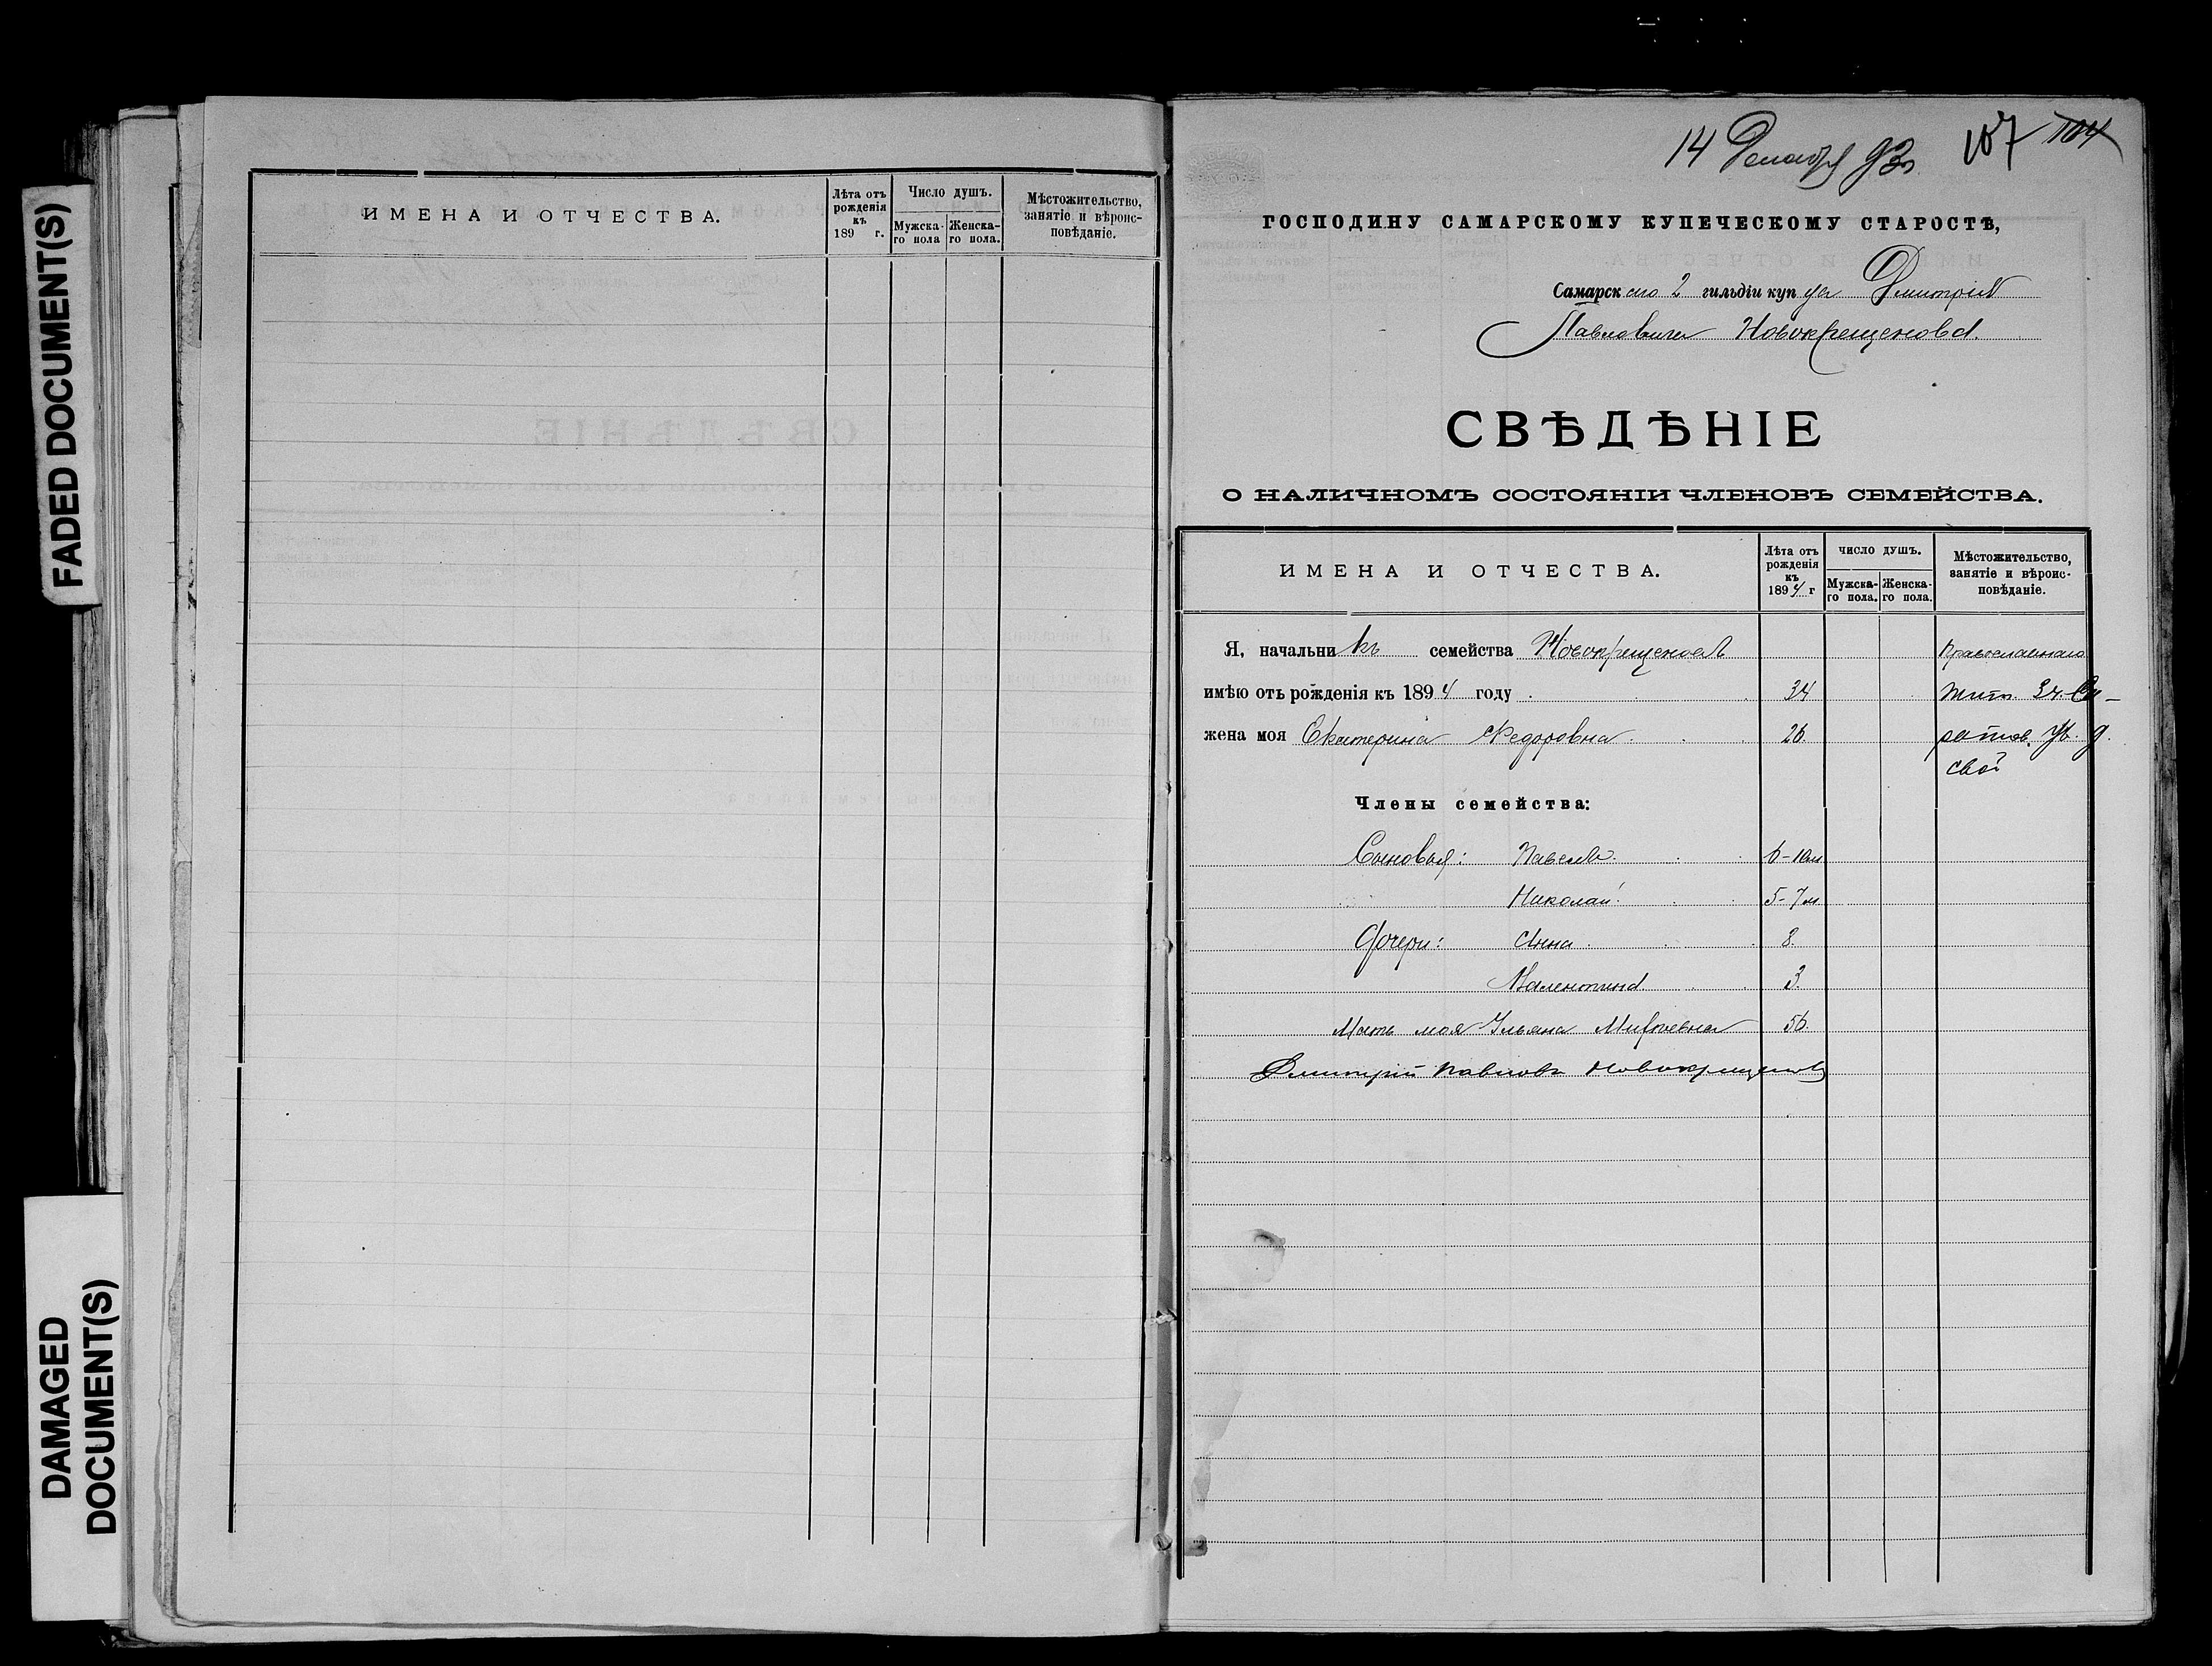 FADED DOCUMENT(S)
DAMAGED
DOCUMENT(S)
ИМЕНА И ОТЧЕСТВА.
Лѣта отъ
рожденія
къ
189 г.
Число душъ.
Мужска-
го пола
Женска-
го пола.
Мѣстожительство,
занятіе и вѣроис-
повѣданіе.
14 Декабря 93 г. 107 104
ГОСПОДИНУ САМАРСКОМУ КУПЕЧЕСКОМУ СТАРОСТѢ,
Самарскаго 2 гильдіи купца Дмитрія
Павловича Новокрещенова.
СВѢДѢНІЕ
О НАЛИЧНОМЪ СОСТОЯНІИ ЧЛЕНОВЪ СЕМЕЙСТВА.
ИМЕНА И ОТЧЕСТВА.
Лѣта отъ
рожденія
къ
1894 г
ЧИСЛО ДУШЪ.
Мужска-
го пола.
Женска-
го пола.
Мѣстожительство,
занятіе и вѣроис-
повѣданіе.
Я, начальникъ семейства Новокрещеновъ Православнаго
имѣю отъ рожденія къ 1894 году 34 жит. 3 ч. Са-
жена моя Екатерина Федоровна 26 ратов. ул. д.
свой
Члены семейства:
Сыновья: Павелъ 6-10м
Николай 5-7м
Дочери: Анна 8.
Валентина 3.
Мать моя Ульяна 56.
Дмитрій Павловъ Новокрещеновъ